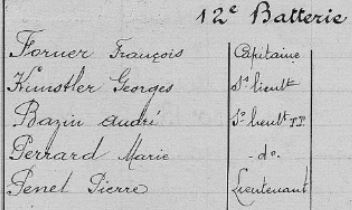 12e Batterie
Forner François Capitaine
Kunstler Georges Ss lieutt
Bazin André Ss lieutt T.T.
Perrard Marie - do -
Penel Pierre Lieutenant